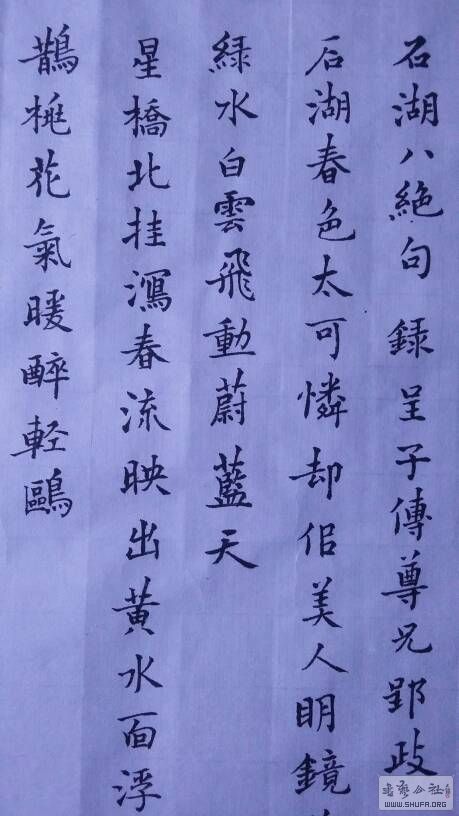 石湖八絶句 録呈子傳尊兄郢政
石湖春色太可憐却佀美人明鏡
緑水白雲飛動蔚藍天
星橋北挂瀉春流映出黄水面浮
鵲桃花氣暖醉軽鷗
書藝公社
WWW.SHUFA.ORG